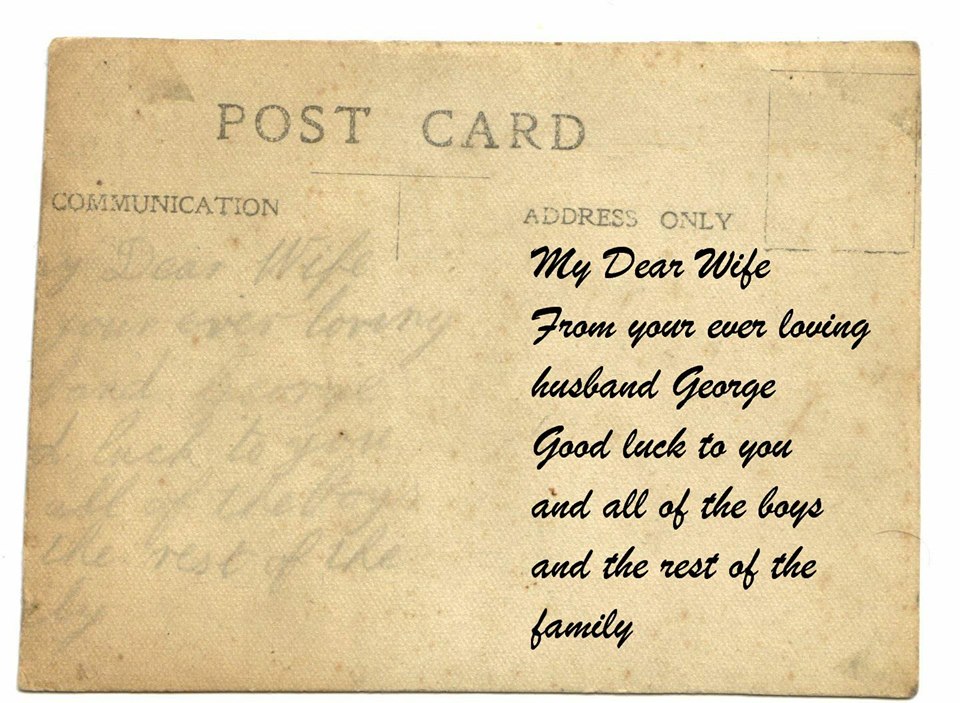 POST CARD
COMMUNICATION
Dear Wife
your ever loving
George
luck to you
all of the Boys
the rest of the
ADDRESS ONLY
My Dear Wife
From your ever loving
husband George
Good luck to you
and all of the boys
and the rest of the
family